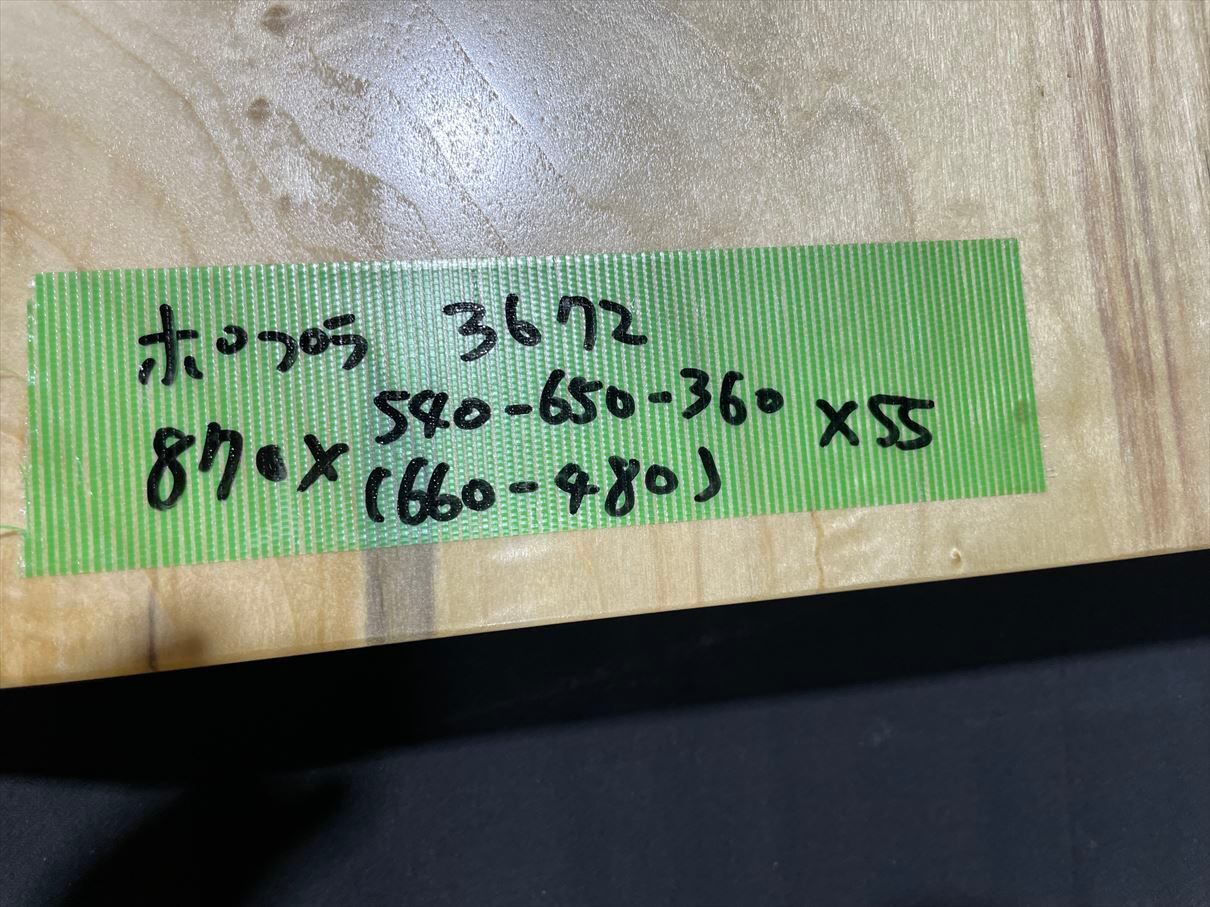 ポプラ 3672
870×540-650-360×55
(660-480)